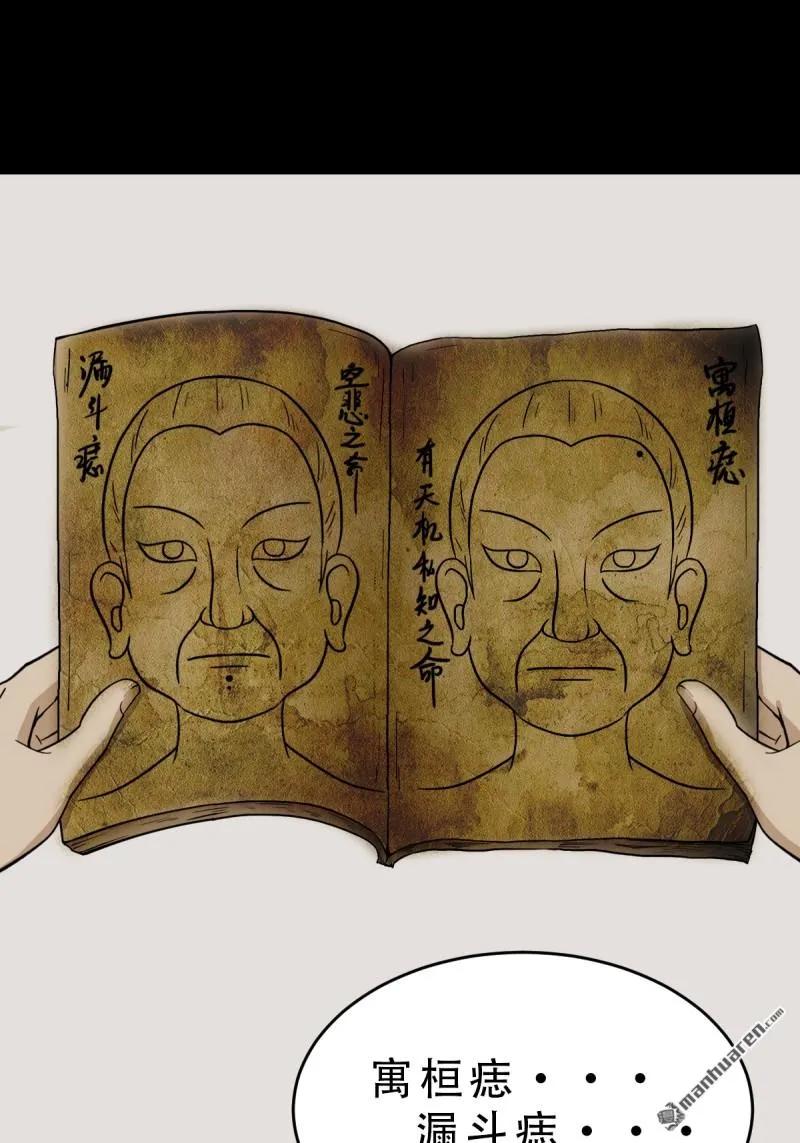 寓桓痣
有天机私知之命
空悲之命
漏斗痣
寓桓痣・・・
漏斗痣・・・
manhuaren.com